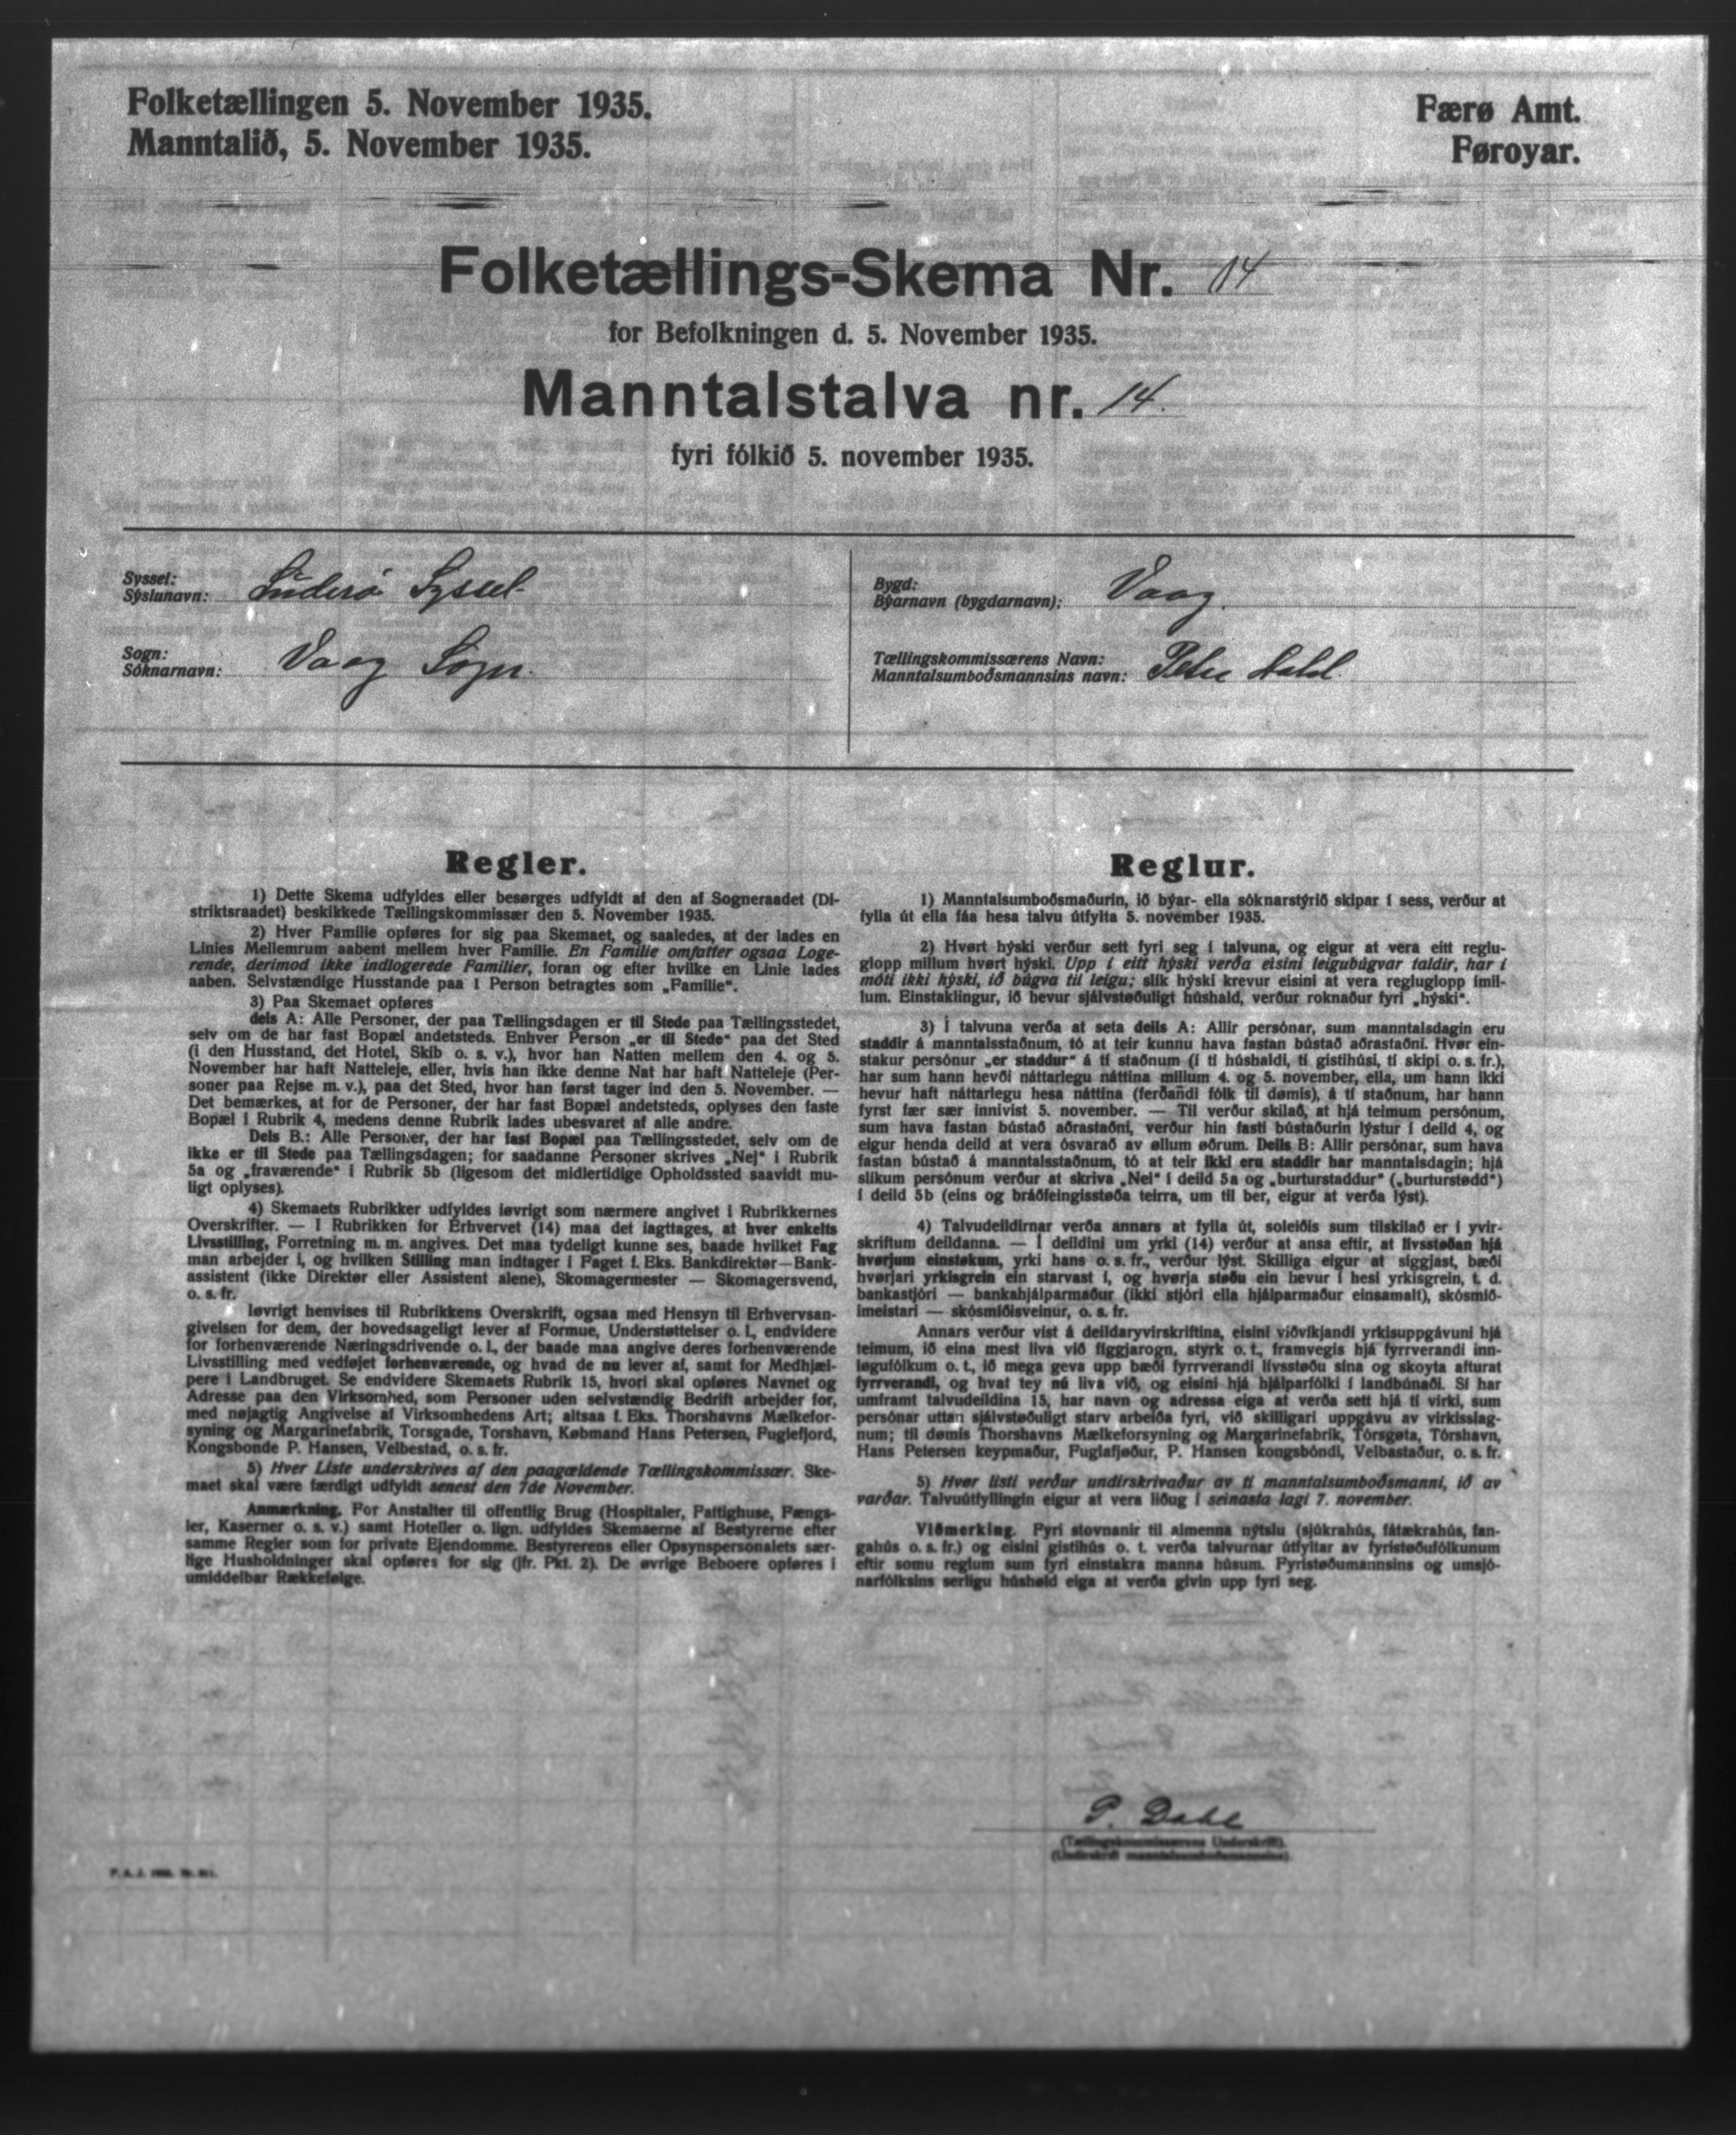 Folketællingen 5. November 1935.
Manntalið, 5. November 1935.
Færø Amt.
Føroyar.
Folketællings-Skema Nr. 14
for Befolkningen d. 5. November 1935.
Manntalstalva nr. 14.
fyri fólkið 5. november 1935.
Syssel:
Sýslunavn: Suderø Syssel
Sogn:
Sóknarnavn: Vaag Sogn.
Bygd:
Býarnavn (bygdarnavn): Vaag.
Tællingskommissærens Navn:
Manntalsumboðsmannsins navn: Peter Dahl.
Regler.
1) Dette Skema udfyldes eller besørges udfyldt af den af Sogneraadet (Di-
striktsraadet) beskikkede Tællingskommissær den 5. November 1935.
2) Hver Familie opføres for sig paa Skemaet, og saaledes, at der lades en
Linies Mellemrum aabent mellem hver Familie. En Familie omfatter ogsaa Loge-
rende, derimod ikke indlogerede Familier, foran og efter hvilke en Linie lades
aaben. Selvstændige Husstande paa 1 Person betragtes som „Familie“.
3) Paa Skemaet opføres
dels A: Alle Personer, der paa Tællingsdagen er til Stede paa Tællingsstedet,
selv om de har fast Bopæl andetsteds. Enhver Person „er til Stede“ paa det Sted
(i den Husstand, det Hotel, Skib o. s. v.), hvor han Natten mellem den 4. og 5.
November har haft Natteleje, eller, hvis han ikke denne Nat har haft Natteleje (Per-
soner paa Rejse m. v.), paa det Sted, hvor han først tager ind den 5. November. —
Det bemærkes, at for de Personer, der har fast Bopæl andetsteds, oplyses den faste
Bopæl i Rubrik 4, medens denne Rubrik lades ubesvaret af alle andre.
Dels B.: Alle Personer, der har fast Bopæl paa Tællingsstedet, selv om de
ikke er til Stede paa Tællingsdagen; for saadanne Personer skrives „Nej“ i Rubrik
5a og „fraværende“ i Rubrik 5b (ligesom det midlertidige Opholdssted saavidt mu-
ligt oplyses).
4) Skemaets Rubrikker udfyldes iøvrigt som nærmere angivet i Rubrikkernes
Overskrifter. — I Rubrikken for Erhvervet (14) maa det iagttages, at hver enkelts
Livsstilling, Forretning m. m. angives. Det maa tydeligt kunne ses, baade hvilket Fag
man arbejder i, og hvilken Stilling man indtager i Faget f. Eks. Bankdirektør—Bank-
assistent (ikke Direktør eller Assistent alene), Skomagermester — Skomagersvend,
o. s. fr.
Iøvrigt henvises til Rubrikkens Overskrift, ogsaa med Hensyn til Erhvervsan-
givelsen for dem, der hovedsageligt lever af Formue, Understøttelser o. l., endvidere
for forhenværende Næringsdrivende o. l., der baade maa angive deres forhenværende
Livsstilling med vedføjet forhenværende, og hvad de nu lever af, samt for Medhjæl-
pere i Landbruget. Se endvidere Skemaets Rubrik 15, hvori skal opføres Navnet og
Adresse paa den Virksomhed, som Personer uden selvstændig Bedrift arbejder for,
med nøjagtig Angivelse af Virksomhedens Art; altsaa f. Eks. Thorshavns Mælkefor-
syning og Margarinefabrik, Torsgade, Torshavn, Købmand Hans Petersen, Fuglefjord,
Kongsbonde P. Hansen, Velbestad, o. s. fr.
5) Hver Liste underskrives af den paagældende Tællingskommissær. Ske-
maet skal være færdigt udfyldt senest den 7de November.
Anmærkning. For Anstalter til offentlig Brug (Hospitaler, Fattighuse, Fængs-
ler, Kaserner o. s. v.) samt Hoteller o. lign. udfyldes Skemaerne af Bestyrerne efter
samme Regler som for private Ejendomme. Bestyrerens eller Opsynspersonalets sær-
lige Husholdninger skal opføres for sig (jfr. Pkt. 2). De øvrige Beboere opføres i
umiddelbar Rækkefølge.
Reglur.
1) Manntalsumboðsmaðurin, ið býar- ella sóknarstýrið skipar í sess, verður at
fylla út ella fáa hesa talvu útfylta 5. november 1935.
2) Hvørt hýski verður sett fyri seg í talvuna, og eigur at vera eitt reglu-
glopp millum hvørt hýski. Upp í eitt hýski verða eisini leigubúgvar taldir, har í
móti ikki hýski, ið búgva til leigu; slík hýski krevur eisini at vera regluglopp ímil-
lum. Einstaklingur, ið hevur sjálvstøðuligt húshald, verður roknaður fyri „hýski“.
3) Í talvuna verða at seta deils A: Allir persónar, sum manntalsdagin eru
staddir á manntalsstaðnum, tó at teir kunnu hava fastan bústað aðrastaðni. Hvør ein-
stakur persónur „er staddur“ á tí staðnum (í tí húshaldi, tí gistihúsi, tí skipi o. s. fr.),
har sum hann hevði náttarlegu náttina millum 4. og 5. november, ella, um hann ikki
hevur haft náttarlegu hesa náttina (ferðandi fólk til dømis), á tí staðnum, har hann
fyrst fær sær innivist 5. november. — Til verður skilað, at hjá teimum persónum,
sum hava fastan bústað aðrastaðni, verður hin fasti bústaðurin lýstur í deild 4, og
eigur henda deild at vera ósvarað av øllum øðrum. Deils B: Allir persónar, sum hava
fastan bústað á manntalsstaðnum, tó at teir ikki eru staddir har manntalsdagin; hjá
slíkum persónum verður at skriva „Nei“ í deild 5a og „burturstaddur“ („burturstødd“)
í deild 5b (eins og bráðfeingisstøða teirra, um til ber, eigur at verða lýst).
4) Talvudeildirnar verða annars at fylla út, soleiðis sum tilskilað er í yvir-
skriftum deildanna. — Í deildini um yrki (14) verður at ansa eftir, at livsstøðan hjá
hvørjum einstøkum, yrki hans o. s. fr., verður lýst. Skilliga eigur at siggjast, bæði
hvørjari yrkisgrein ein starvast í, og hvørja støðu ein hevur í hesi yrkisgrein, t. d.
bankastjóri — bankahjálparmaður (ikki stjóri ella hjálparmaður einsamalt), skósmið-
imeistari — skósmiðisveinur, o. s. fr.
Annars verður víst á deildaryvirskriftina, eisini viðvíkjandi yrkisuppgávuni hjá
teimum, ið eina mest liva við figgjarogn, styrk o. t., framvegis hjá fyrrverandi inn-
løgufólkum o. t., ið mega geva upp bæði fyrrverandi livsstøðu sína og skoyta afturat
fyrrverandi, og hvat tey nú liva við, og eisini hjá hjálparfólki í landbúnaði. Sí har
umframt talvudeildina 15, har navn og adressa eiga at verða sett hjá tí virki, sum
persónar uttan sjálvstøðuligt starv arbeiða fyri, við skilligari uppgávu av virkisslag-
num; til dømis Thorshavns Mælkeforsyning og Margarinefabrik, Tórsgøta, Tórshavn,
Hans Petersen keypmaður, Fuglafjøður, P. Hansen kongsbóndi, Velbastaður, o. s. fr.
5) Hvør listi verður undirskrivaður av tí manntalsumboðsmanni, ið av
varðar. Talvuútfyllingin eigur at vera liðug í seinasta lagi 7. november.
Viðmerking. Fyri stovnanir til almenna nýtslu (sjúkrahús, fátækrahús, fan-
gahús o. s. fr.) og eisini gistihús o. t. verða talvurnar útfyltar av fyristøðufólkunum
eftir somu reglum sum fyri einstakra manna húsum. Fyristøðumannsins og umsjó-
narfólksins serligu húshald eiga at verða givin upp fyri seg.
P. Dahl
(Tællingskommissærens Underskrift).
(Undirskrift manntalsumboðsmannsins)